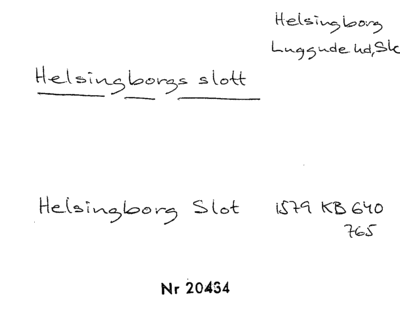 Helsingborg
Luggude hd, Sk
Helsingborgs slott
Helsingborg Slot 1579 KB 640
765
Nr 20434